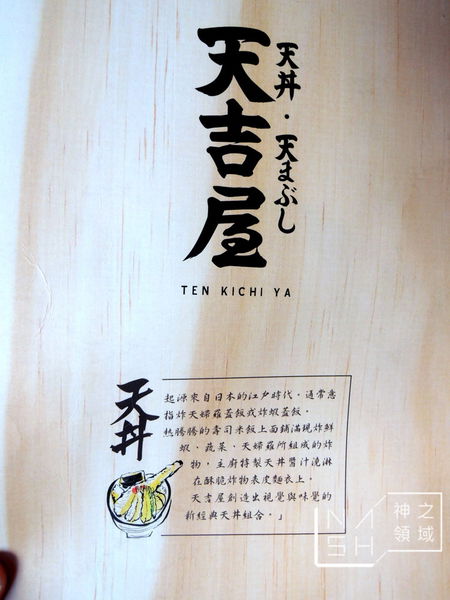 天丼・天まぶし
天吉屋
TEN KICHI YA
天丼
起源來自日本的江戶時代，通常意
指炸天婦羅蓋飯或炸蝦蓋飯。
熱騰騰的壽司米飯上面鋪滿現炸鮮
蝦、蔬菜、天婦羅所組成的炸
物，主廚特製天丼醬汁澆淋
在酥脆炸物表皮麵衣上，
天吉屋創造出視覺與味覺的
新經典天丼組合。」
NASH
神之
領域